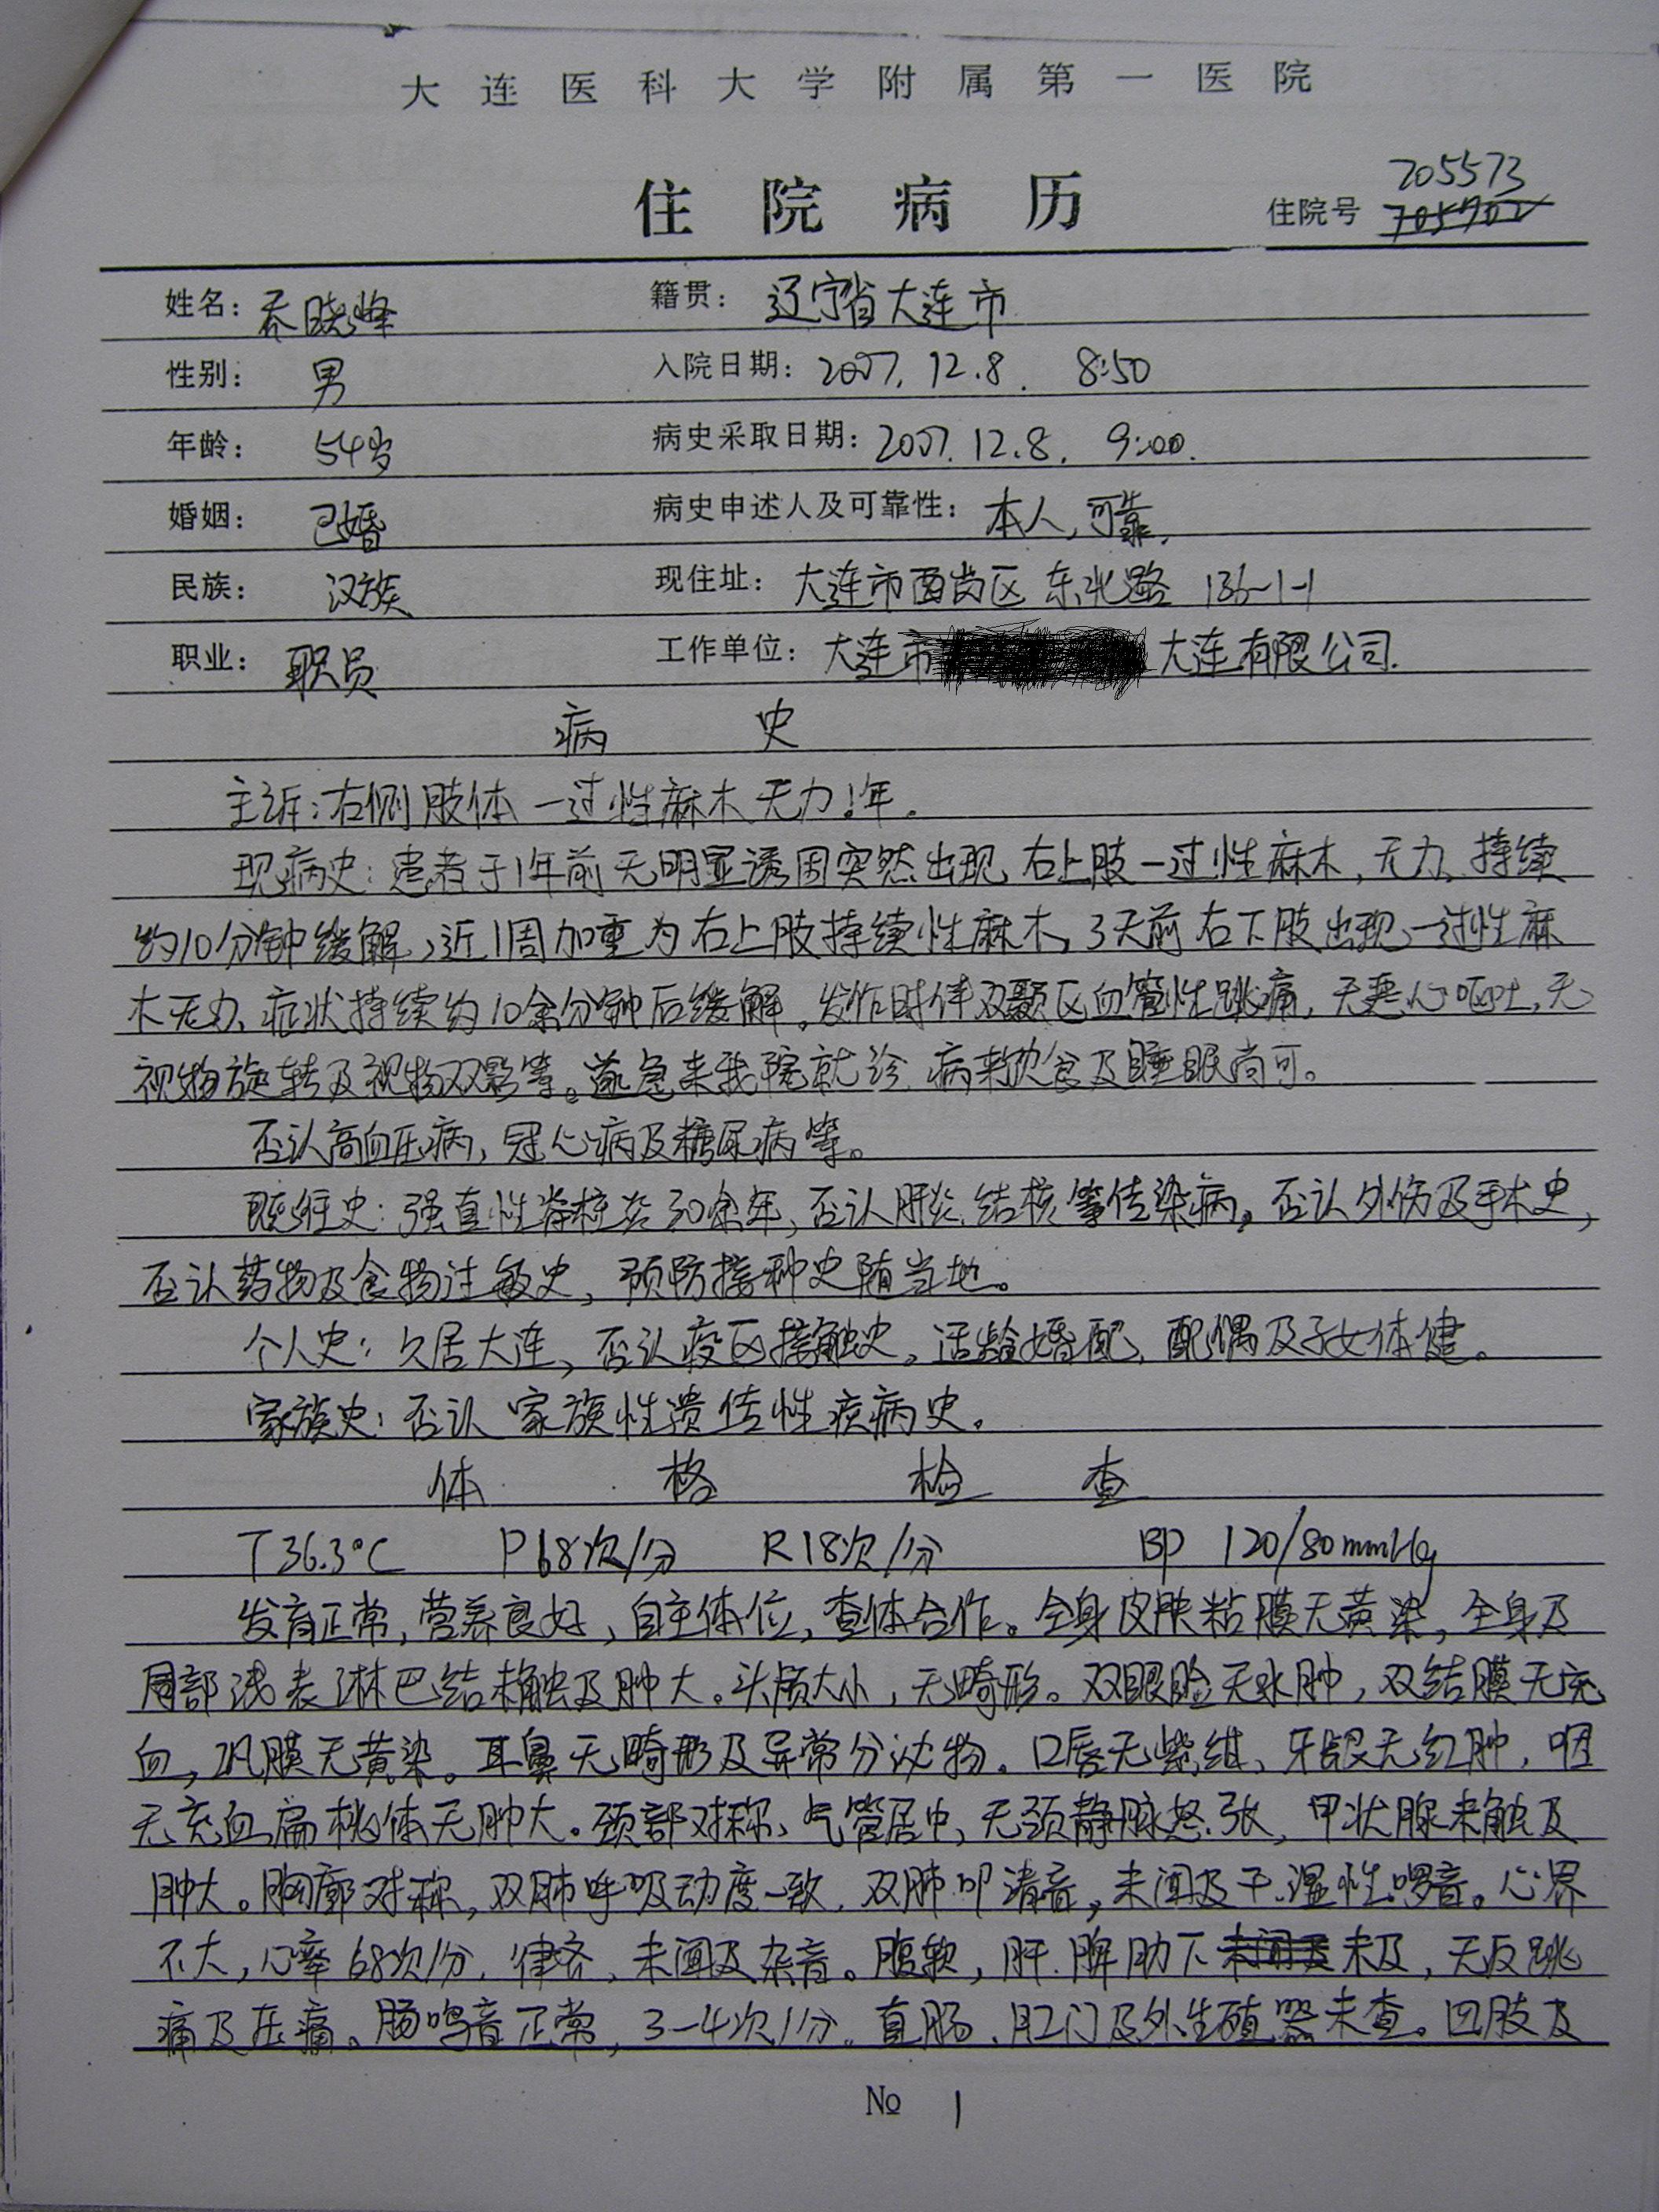 大连医科大学附属第一医院
住院病历
705573
住院号
姓名：乔晓峰 籍贯：辽宁省大连市
性别：男 入院日期：2007.12.8. 8:50
年龄：54岁 病史采取日期：2007.12.8. 9:00.
婚姻：已婚 病史申述人及可靠性：本人,可靠.
民族：汉族 现住址：大连市西岗区东北路 136-1-1
职业：职员 工作单位：大连市 大连有限公司.
病 史
主诉：右侧肢体一过性麻木无力1年。
现病史：患者于1年前无明显诱因突然出现右上肢一过性麻木,无力,持续
约10分钟缓解,近1周加重为右上肢持续性麻木,3天前右下肢出现一过性麻
木无力,症状持续约10余分钟后缓解。发作时伴双颞区血管性跳痛,无恶心呕吐,无
视物旋转及视物双影等。遂急来我院就诊 病来饮食及睡眠尚可。
否认高血压病,冠心病及糖尿病等。
既往史：强直性脊柱炎30余年,否认肝炎、结核等传染病。否认外伤及手术史,
否认药物及食物过敏史,预防接种史随当地。
个人史：久居大连,否认疫区接触史。适龄婚配,配偶及子女体健。
家族史：否认家族性遗传性疾病史。
体 格 检 查
T 36.3℃ P 68次/分 R 18次/分 BP 120/80mmHg
发育正常,营养良好,自主体位,查体合作。全身皮肤粘膜无黄染,全身及
局部浅表淋巴结未触及肿大。头颅大小,无畸形。双眼睑无水肿,双结膜无充
血,巩膜无黄染。耳鼻无畸形及异常分泌物。口唇无紫绀、牙龈无红肿,咽
无充血扁桃体无肿大。颈部对称、气管居中,无颈静脉怒张,甲状腺未触及
肿大。胸廓对称,双肺呼吸动度一致,双肺叩清音,未闻及干.湿性啰音。心界
不大,心率68次/分,律齐,未闻及杂音。腹软,肝.脾肋下未及,无反跳
痛及压痛。肠鸣音正常,3-4次/分。直肠、肛门及外生殖器未查。四肢及
№ 1